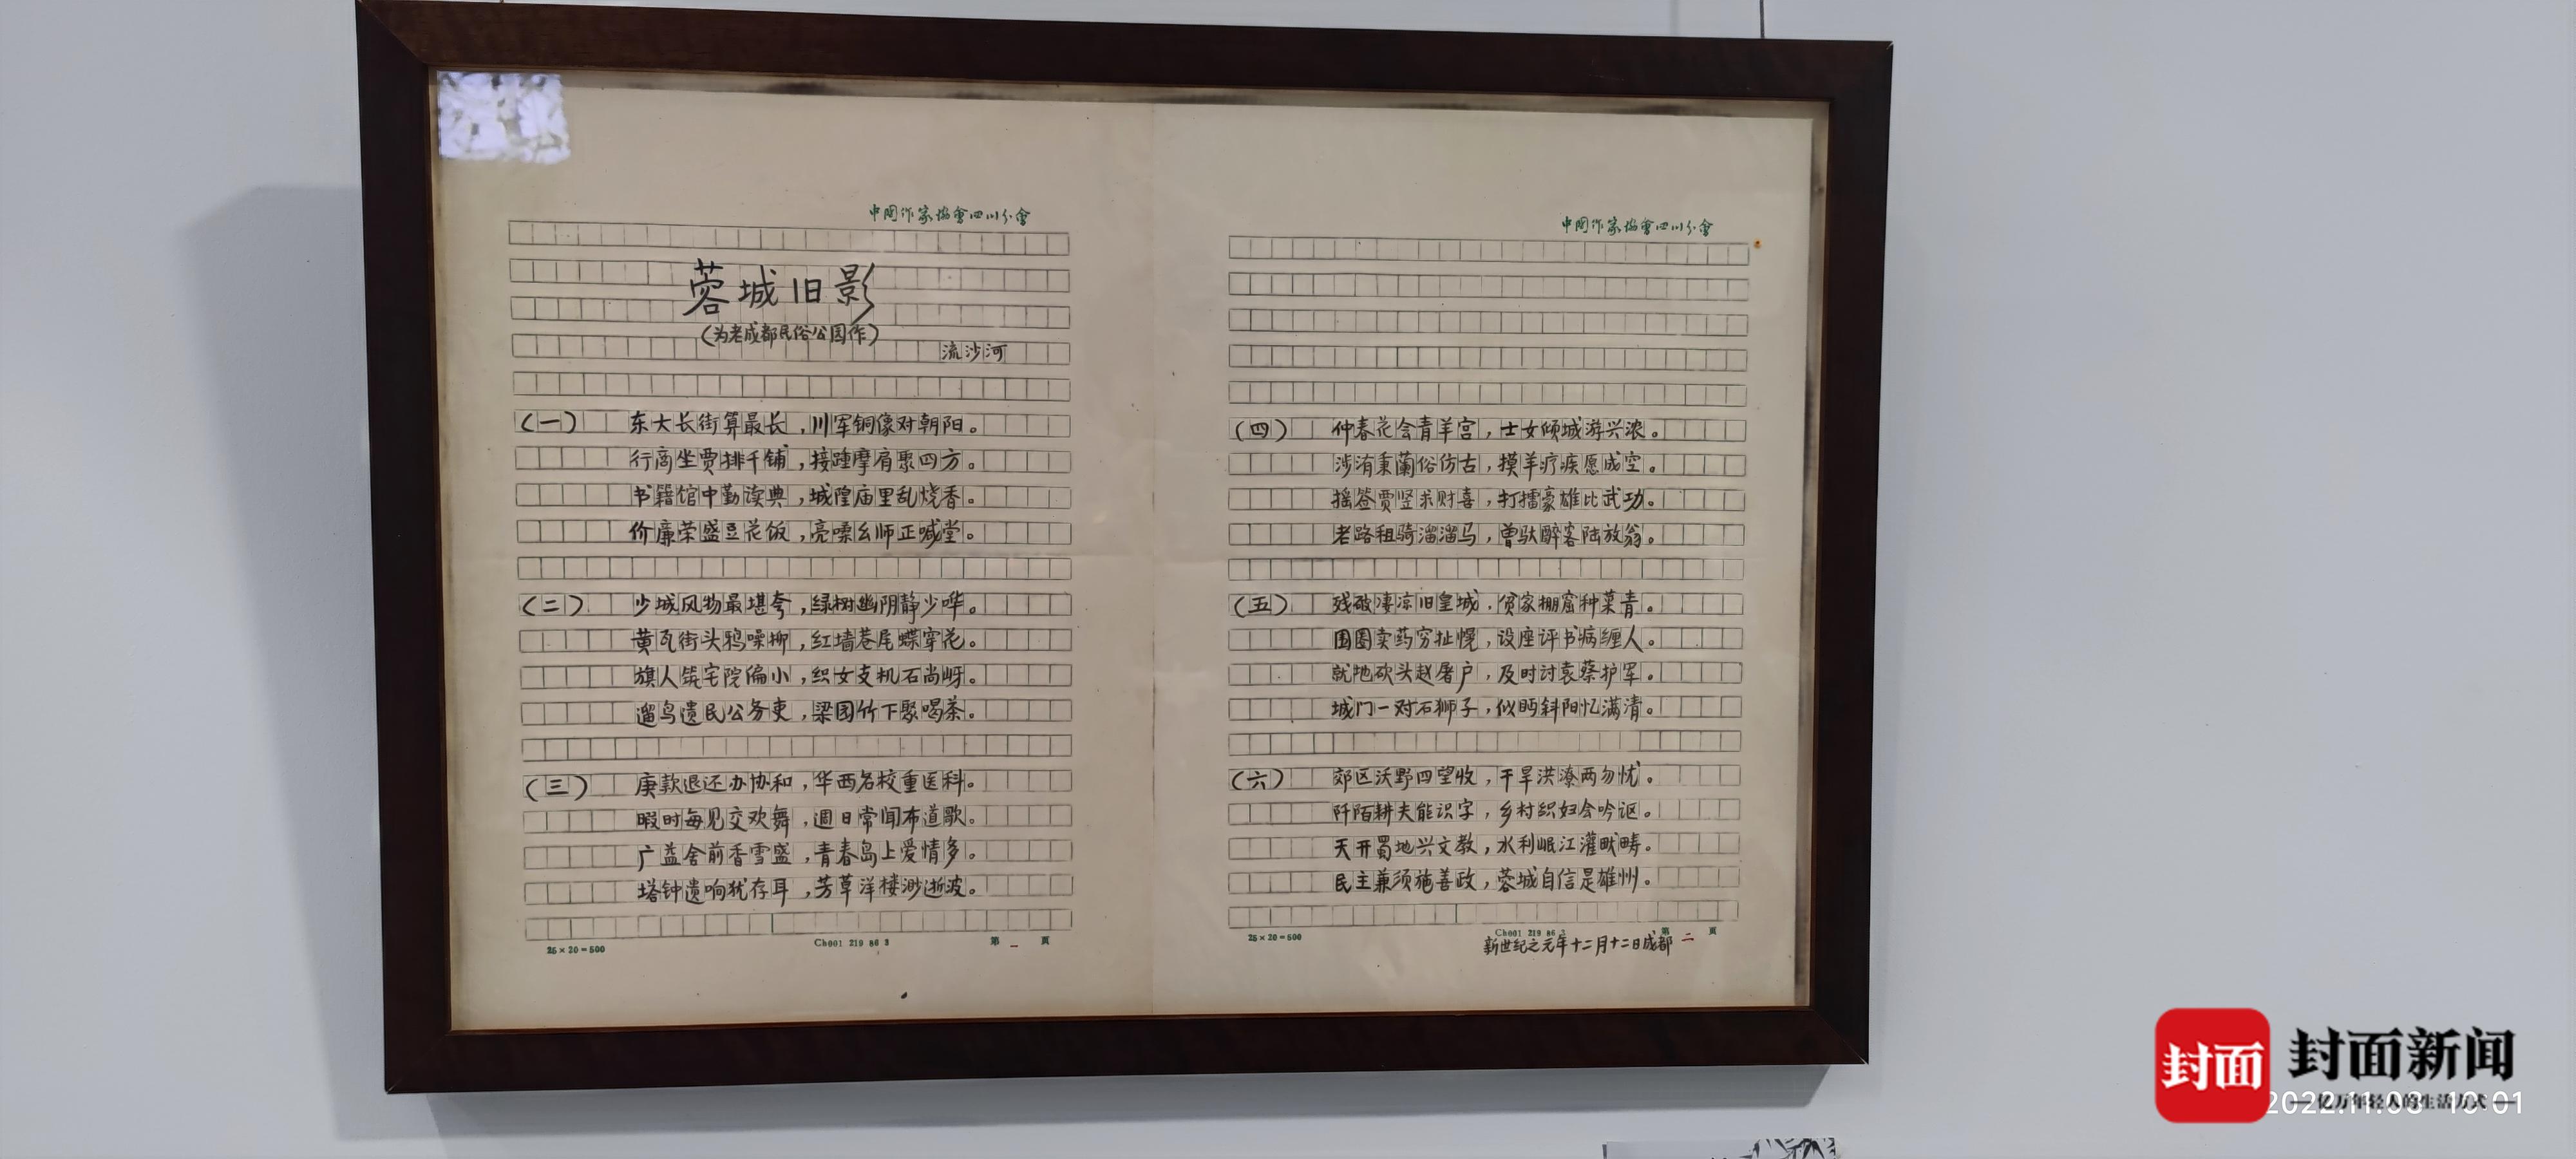 中国作家协會四川分會
蓉城旧影
(为老成都民俗公园作)
流沙河
(一) 东大长街算最长，川军铜像对朝阳。
行商坐贾排千铺，接踵摩肩聚四方。
书籍馆中勤读典，城隍庙里乱烧香。
价廉荣盛豆花饭，亮嗓幺师正喊堂。
(二) 少城风物最堪夸，绿树幽阴静少哗。
黄瓦街头鸦噪柳，红墙巷尾蝶穿花。
旗人筑宅院偏小，织女支机石尚岈。
遛鸟遗民公务吏，梁园竹下聚喝茶。
(三) 庚款退还办协和，华西名校重医科。
暇时每见交欢舞，週日常闻布道歌。
广益舍前香雪盛，青春岛上爱情多。
塔钟遗响犹存耳，芳草洋楼渺逝波。
25×20=500 Ch001 219 86 3 第 一 頁
中国作家协會四川分會
(四) 仲春花会青羊宫，士女倾城游兴浓。
涉洧秉蘭俗仿古，摸羊疗疾愿成空。
摇签贾竖求财喜，打擂豪雄比武功。
老路租骑溜溜马，曾驮醉客陆放翁。
(五) 残破凄凉旧皇城，贫家棚窟种菜青。
围圈卖药穷扯慌，设座评书病缠人。
就地砍头赵屠户，及时讨袁蔡护军。
城门一对石狮子，似眄斜阳忆满清。
(六) 郊区沃野四望收，干旱洪潦两勿忧。
阡陌耕夫能识字，乡村织妇会吟讴。
天开蜀地兴文教，水利岷江灌畎畴。
民主兼须施善政，蓉城自信是雄州。
25×20=500 Ch001 219 86 3 第 二 頁
新世纪之元年十二月十二日成都
封面 封面新闻
亿万年轻人的生活方式